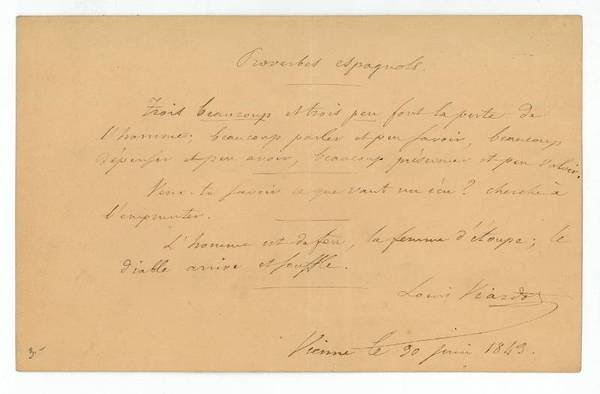 Proverbes espagnols.
Trois beaucoup et trois peu font la perte de
l'homme; beaucoup parler et peu savoir, beaucoup
dépenser et peu avoir, beaucoup présumer et peu valoir.
Veux-tu savoir ce que vaut un écu? cherche à
l'emprunter.
L'homme est de feu, la femme d'étoupe; le
diable arrive et souffle.
Louis Viardot
Vienne le 30 juin 1843.